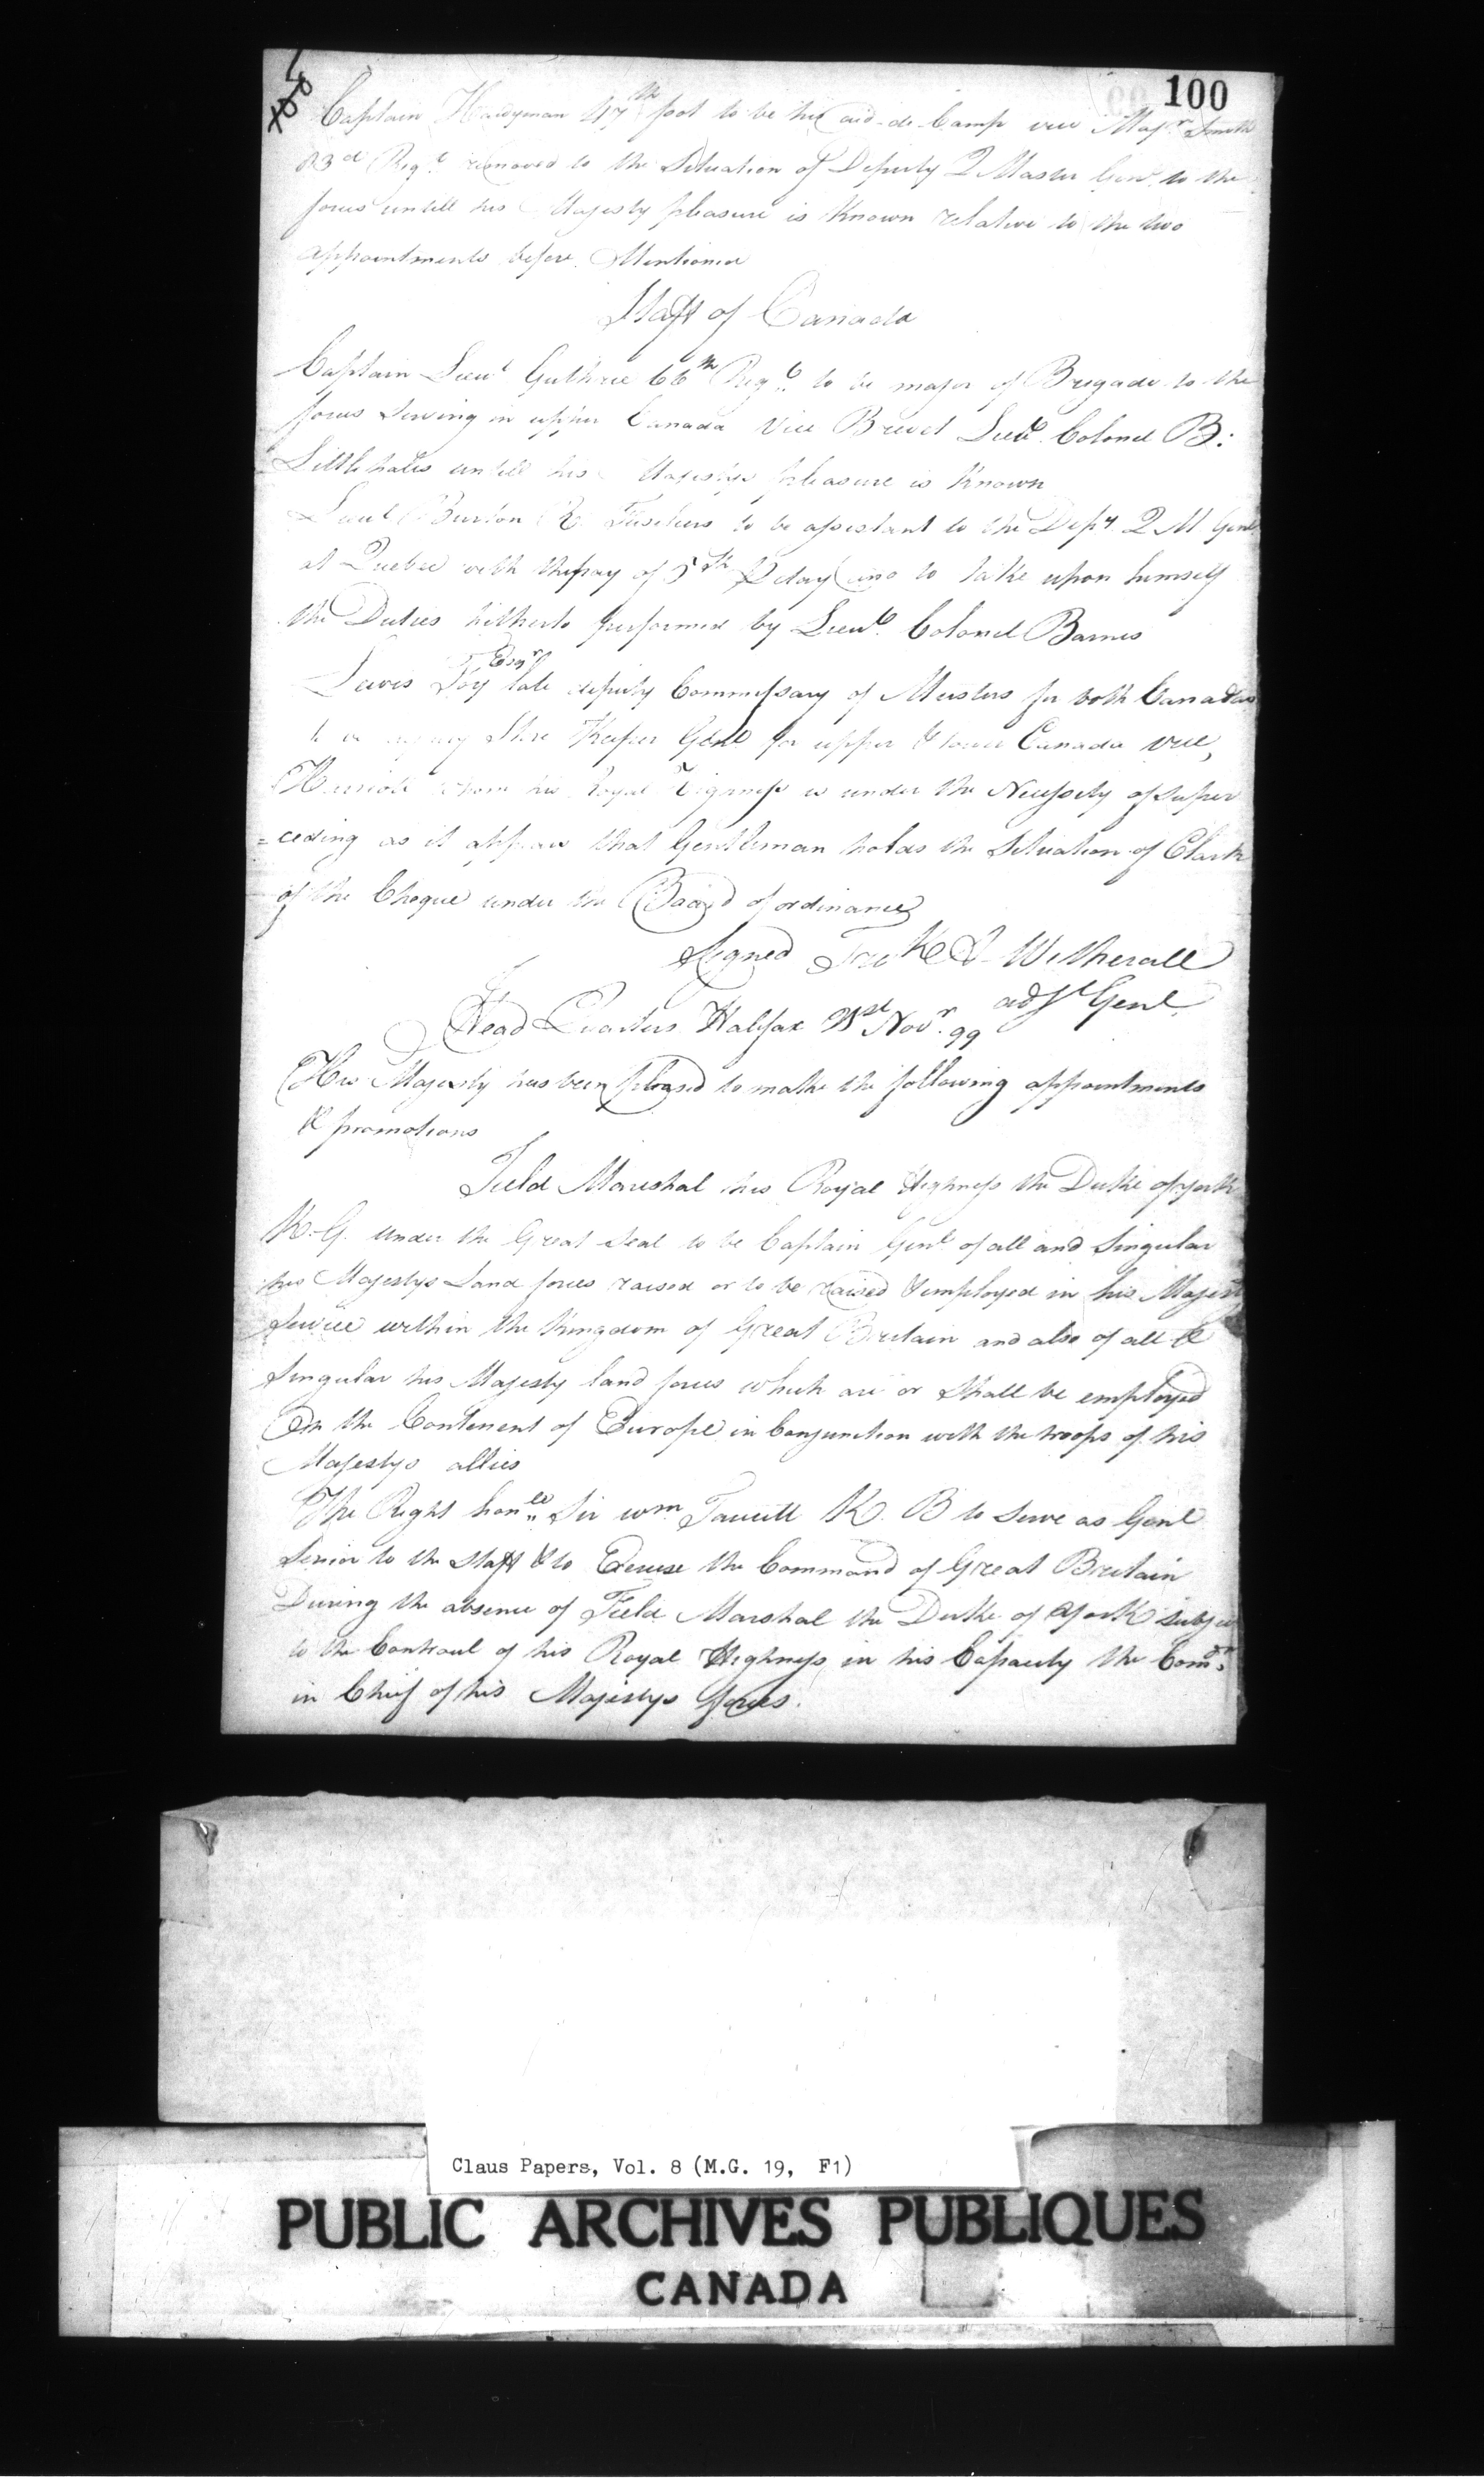 100
Captain Hardyman 47th foot to be his aid-de-Camp vice Majr Smith
23d Regt removed to the Situation of Deputy Q Master Genl to the
forces untill his Majesty pleasure is Known relative to the two
appointments before Mentioned
Staff of Canada
Captain Lieut Guthrie 66th Regt to be major of Brigade to the
forces Serving in upper Canada Vice Brevet Lieut Colonel B:
Littlehales untill his Majestys pleasure is Known
Lieut Burton R. Fusileers to be assistant to the Depy Q M Genl
at Quebec with the pay of 5 Sh P day and to take upon himself
the Duties hitherto performed by Lieut Colonel Barnes
Lewis Foy Esqr late deputy Commissary of Musters for both Canadas
to be Store Keeper Genl for upper & lower Canada vice,
whom his Royal Highness is under the Necessity of super
=ceding as it appears that Gentleman holds the Situation of Clark
of the Cheque under the Board of ordinance
Signed Fredk A Witherall
adjt Genl
Head Quarters Halifax 21st Novr 99
His Majesty has been pleased to make the following appointments
& promotions
Field Mareshal his Royal Highness the Duke of york
K.G. under the Great Seal to be Captain Genl of all and Singular
his Majestys Land forces raised or to be raised & employed in his Majest
Service within the Kingdom of Great Britain and also of all &
Singular his Majesty land forces which are or Shall be employed
On the Continent of Europe in Conjunction with the troops of his
Majestys allies
The Right honle Sir wm Faucitt K. B to Serve as Genl
Senior to the Staff & to Excuse the Command of Great Britain
During the absence of Field Marshal the Duke of York subject
to the Controul of his Royal Highness in his Capacity the Comdr
in Chief of his Majestys forces.
Claus Papers, Vol. 8 (M.G. 19, F1)
PUBLIC ARCHIVES PUBLIQUES
CANADA